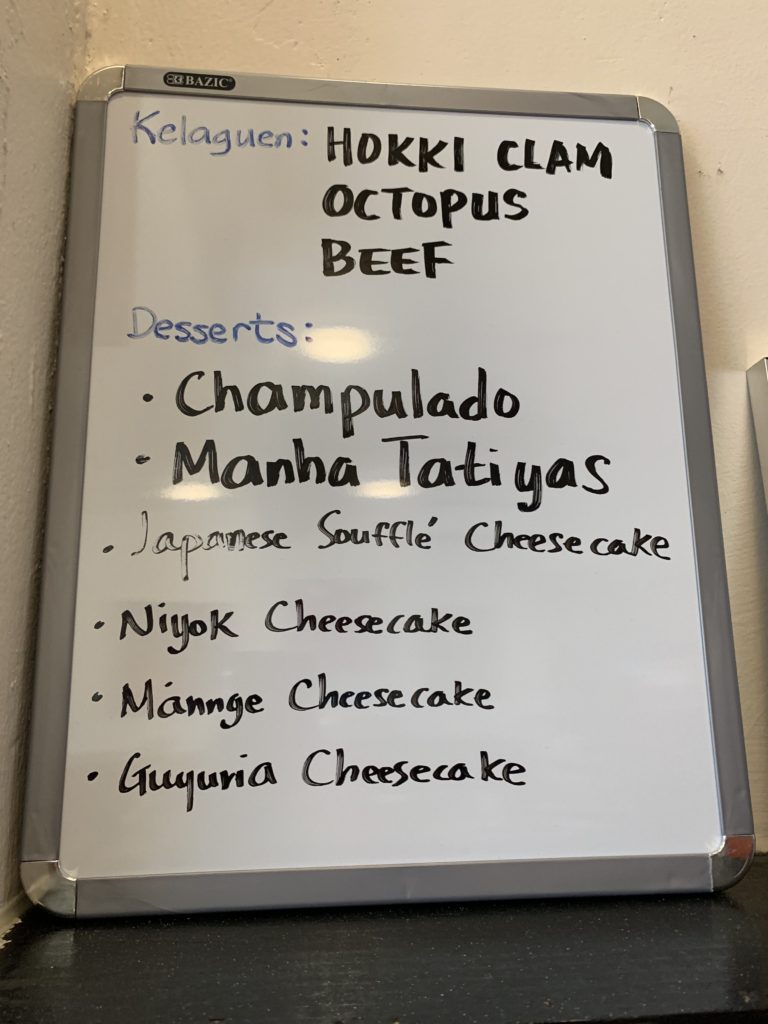 BAZIC
Kelaguen: HOKKI CLAM
OCTOPUS
BEEF
Desserts:
• Champulado
• Manha Tatiyas
• Japanese Soufflé Cheesecake
• Niyok Cheesecake
• Mánnge Cheesecake
• Guyuria Cheesecake